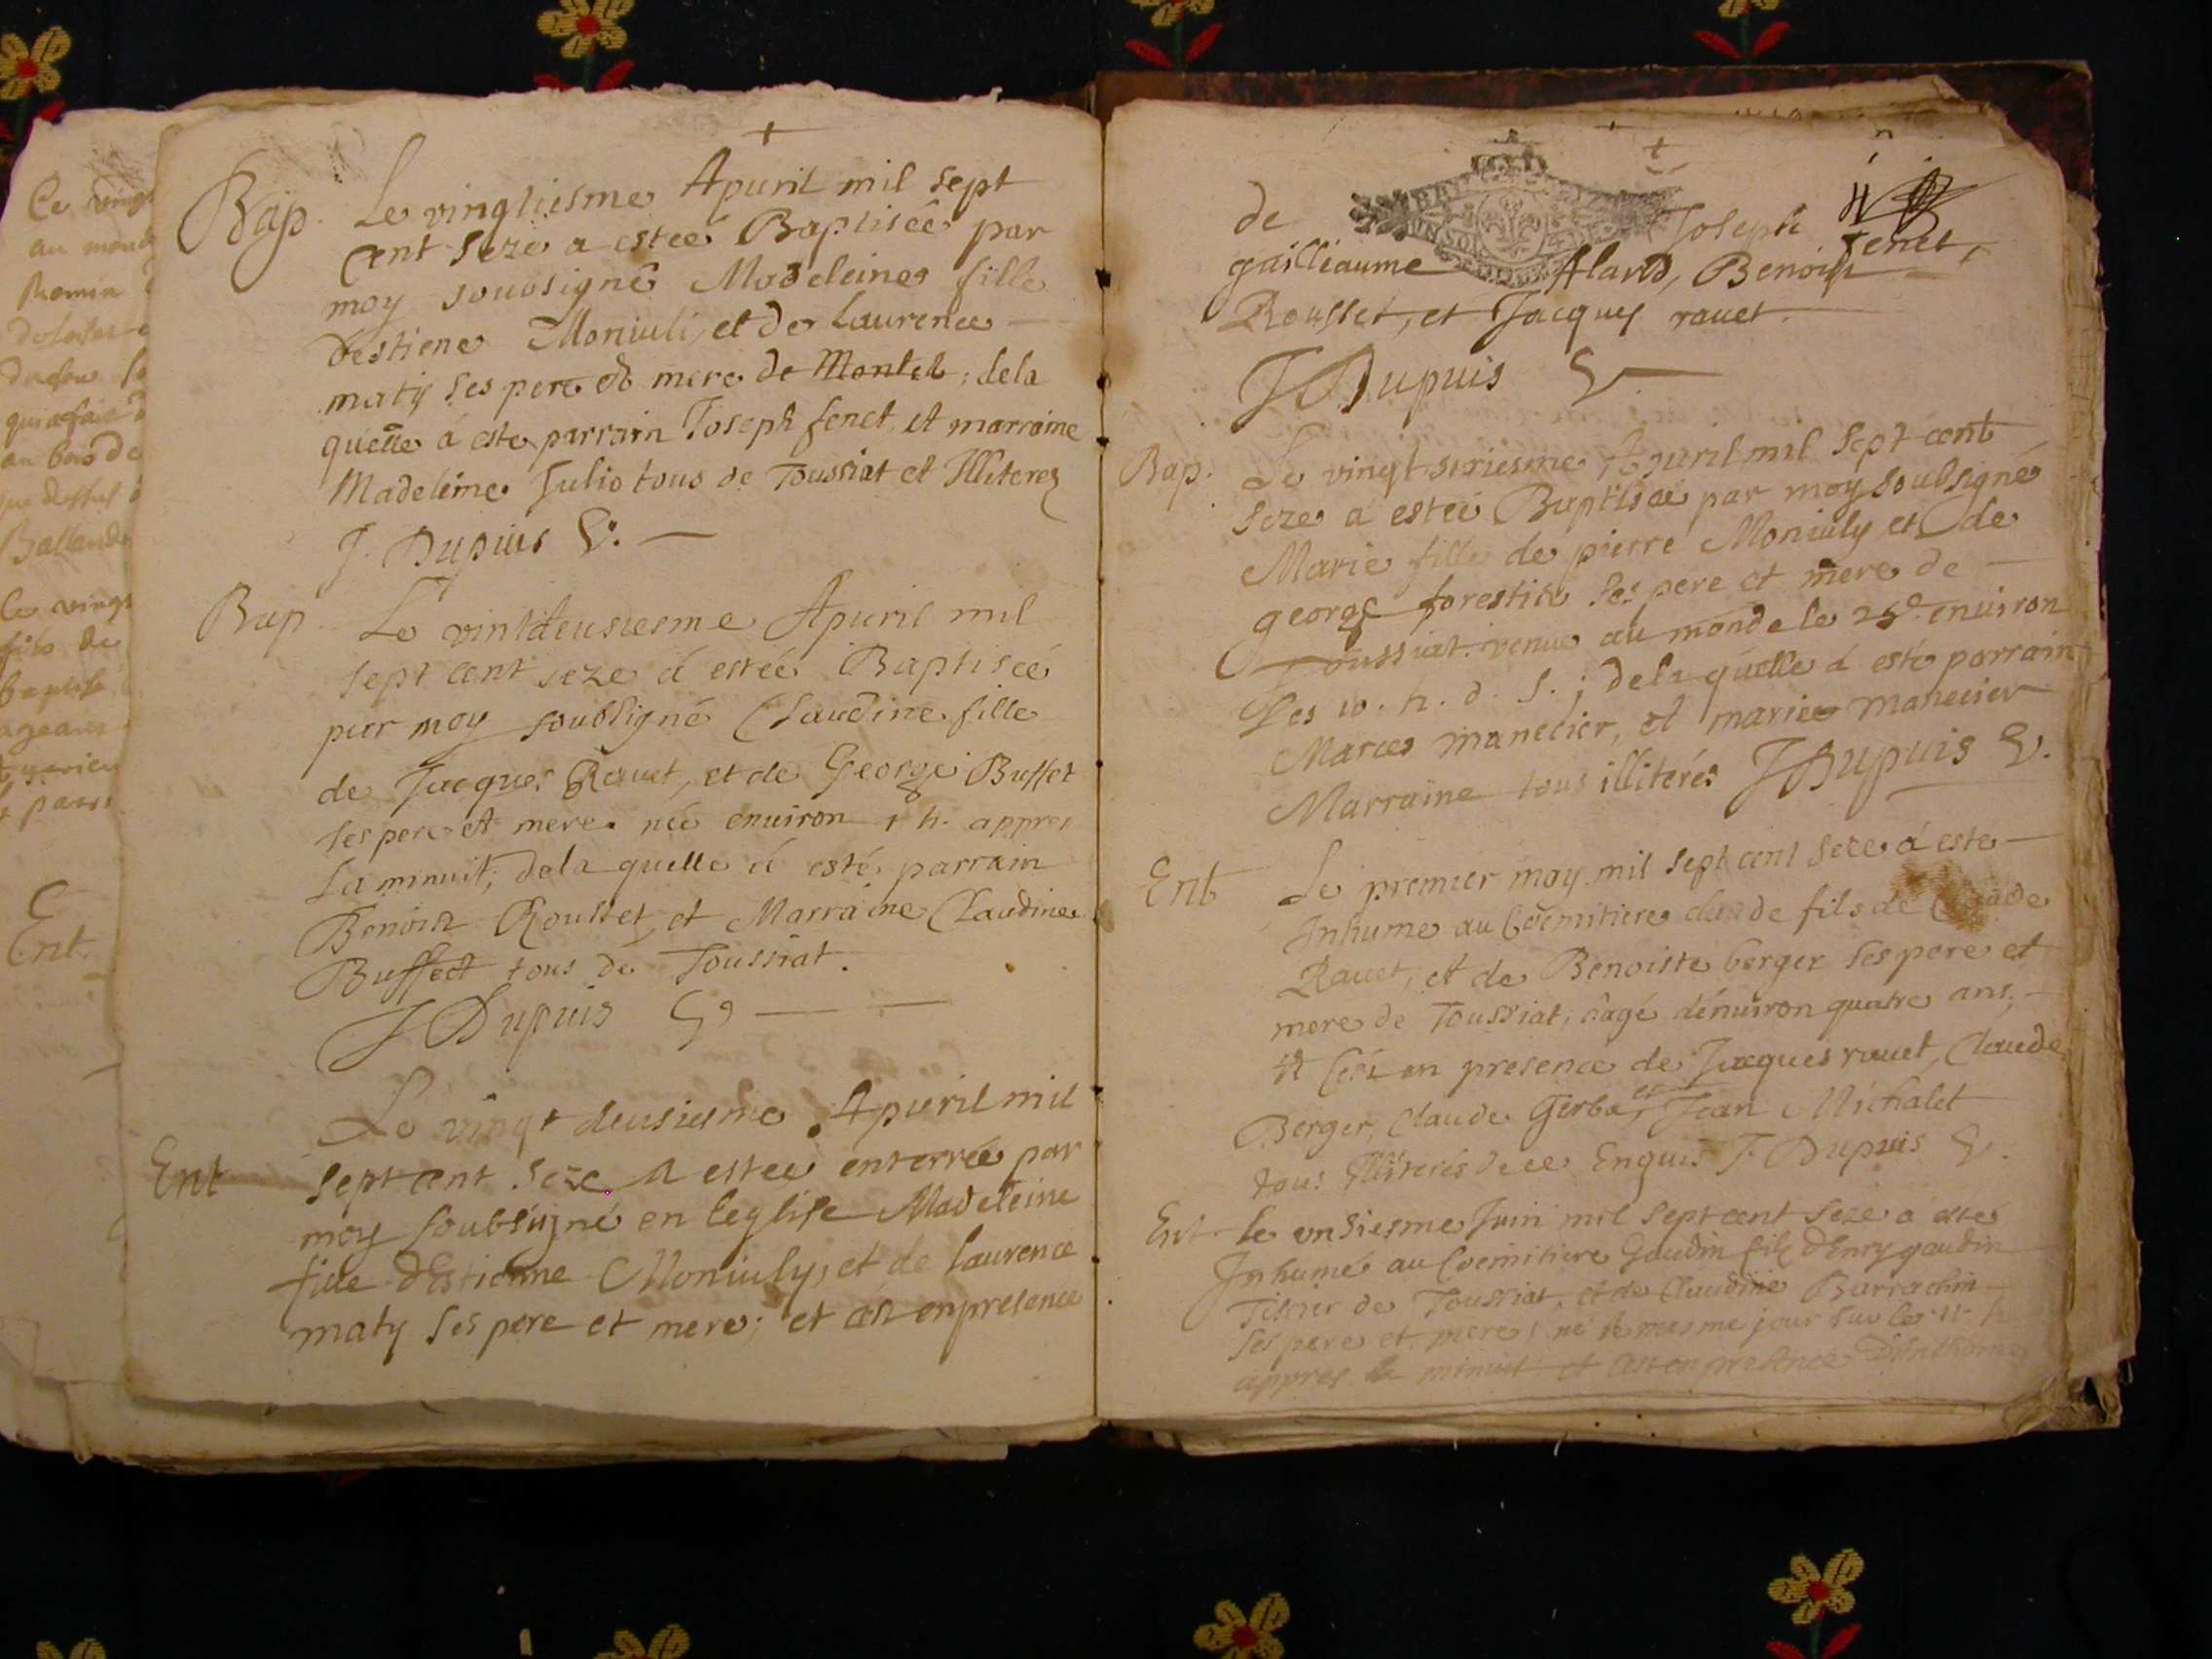 Ce vingt
au mond
Romin
du feu
qui a fait
au bois de
que dessus
Ballando
Ce vingt
fils de
baptisé
Ent.
Bap. Le vingtiesme Apuril mil sept
cent seze a esteé Baptiseé par
moy soubsigné Madeleine fille
destiene Moniuli, et de Laurence
maty ses pere et mere de Montel; dela
quelle a este parrain Joseph fenet et marraine
Madeleine Julio tous de Toussiat et Illiterez
J. Dupuis V.
Bap. Le vintdeusiesme Apuril mil
sept cent seze á esteé Baptiseé
par moy soubsigné Claudine fille
de Jacques Rauet, et de George Buffet
ses pere et mere neé enuiron 1 h. appres
La minuit; dela quelle á esté parrain
Benoist Rousset, et Marraine Claudine
Buffect tous de Toussiat.
J Dupuis V
Le vingt deusiesme Apuril mil
Ent sept cent seze a esteé enterreé par
moy soubsigné en leglise Madeleine
fille dEstienne Moniuly, et de laurence
maty ses pere et mere; et cest en presence
de Joseph fenet,
guilliaume Alard, Benoist
Rousset, et Jacques rauet.
J Dupuis V
Bap. Le vingt sixiesme Apuril mil sept cent
seze a esteé Baptiseé par moy soubsigné
Marie fille de pierre Moniuly et de
george forestier ses pere et mere de
Toussiat venue au monde le 25e enuiron
Les 10. h. d. S.; dela quelle á esté parrain
Marces manecier, et marie manecier
Marraine tous illiterés J Dupuis V.
Ent Le premier may mil sept cent seze á este
Inhume au Coemitiere claude fils de Claude
Rauet, et de Benoiste berger ses pere et
mere de Toussiat, aâgé dénuiron quatre ans,
et Cest en presence de Jacques rauet, Claude
Berger, Claude Gerba, et Jean Michalet
tous Illiterés de ce Enquis J. Dupuis V.
Ent. Le onsiesme Juin mil sept cent seze a esté
Inhumé au Coemitiere Gaudin fils dEnry gaudin
Tissier de Toussiat, et de Claudine Barrachin
ses pere et mere, né le mesme jour sur les 11 h
appres la minuit et cest en presence